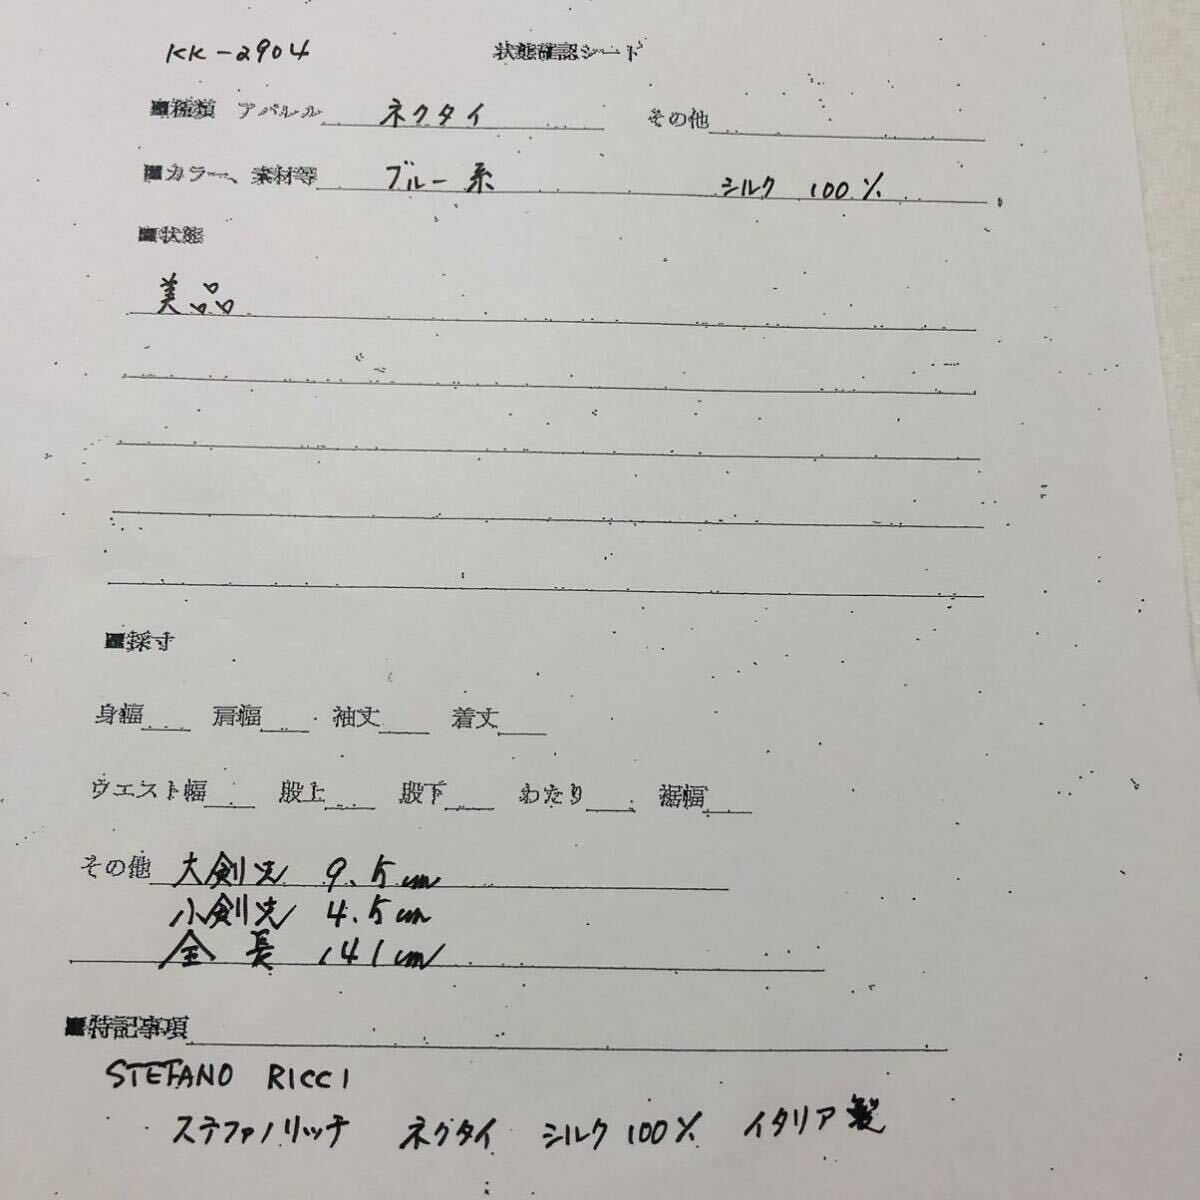 KK-2904 状態確認シート
■種類 アパレル ネクタイ その他
■カラー、素材等 ブルー系 シルク 100%
■状態
美品
■採寸
身幅 肩幅 袖丈 着丈
ウエスト幅 股上 股下 わたり 裾幅
その他 大剣先 9.5cm
小剣先 4.5cm
全長 141cm
■特記事項
STEFANO RICCI
ステファノリッチ ネクタイ シルク100% イタリア製